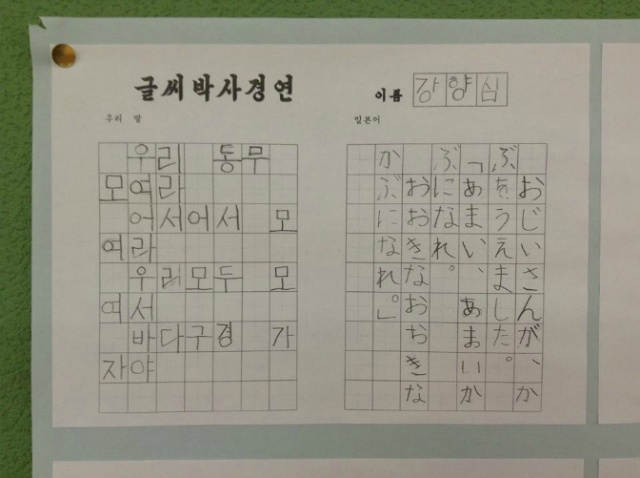 글씨박사경연
이름 강향심
우리 말
우리 동무
모여라
어서어서 모
여라
우리모두 모
여서
바다구경 가
자야
일본어
おじいさんが、か
ぶをうえました。
「あまい、あまいか
ぶになれ。
おおきなおおきな
かぶになれ。」